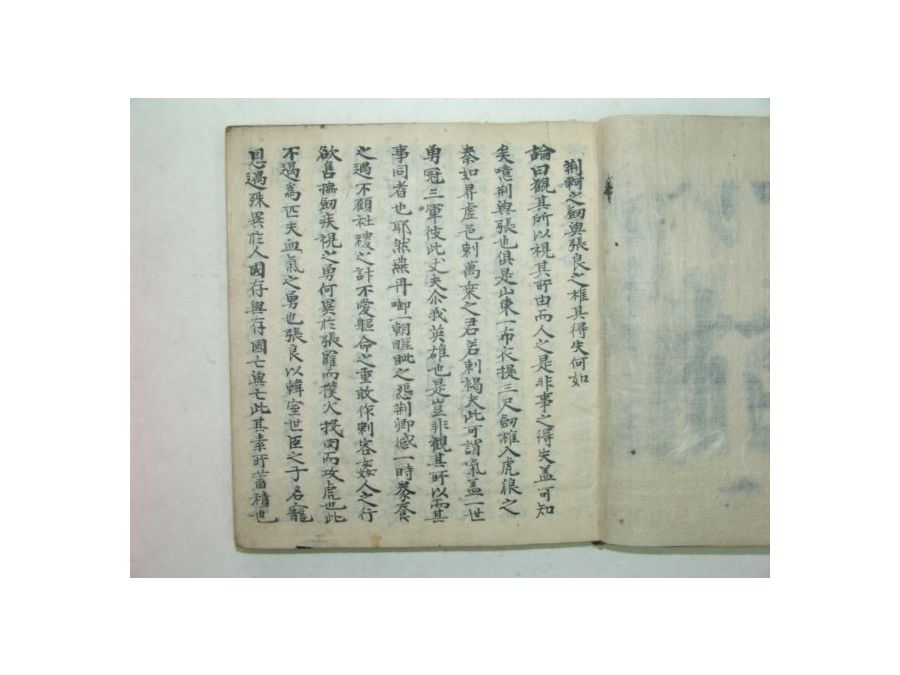 荊軻之劒與張良之椎其得失何如
論曰觀其所以視其所由而人之是非事之得失盖可知
矣噫荊與張也俱是山東一布衣提三尺劒椎入虎狼之
秦如昇虛邑刺萬乘之君若刺褐夫此可謂氣盖一世
勇冠三軍彼此丈夫尒我英雄也是豈非觀其所以而其
事同者也耶然燕丹啣一朝睚眦之怨荊卿感一時豢養
之遇不顧社稷之計不愛軀命之重敢作刺客姦人之行
欲售撫劒疾視之勇何異於張羅而撲火投肉而攻虎也此
不過爲匹夫血氣之勇也張良以韓室世臣之子名寵
恩遇殊異於人國存與存國亡與亡此其素所蓄積也